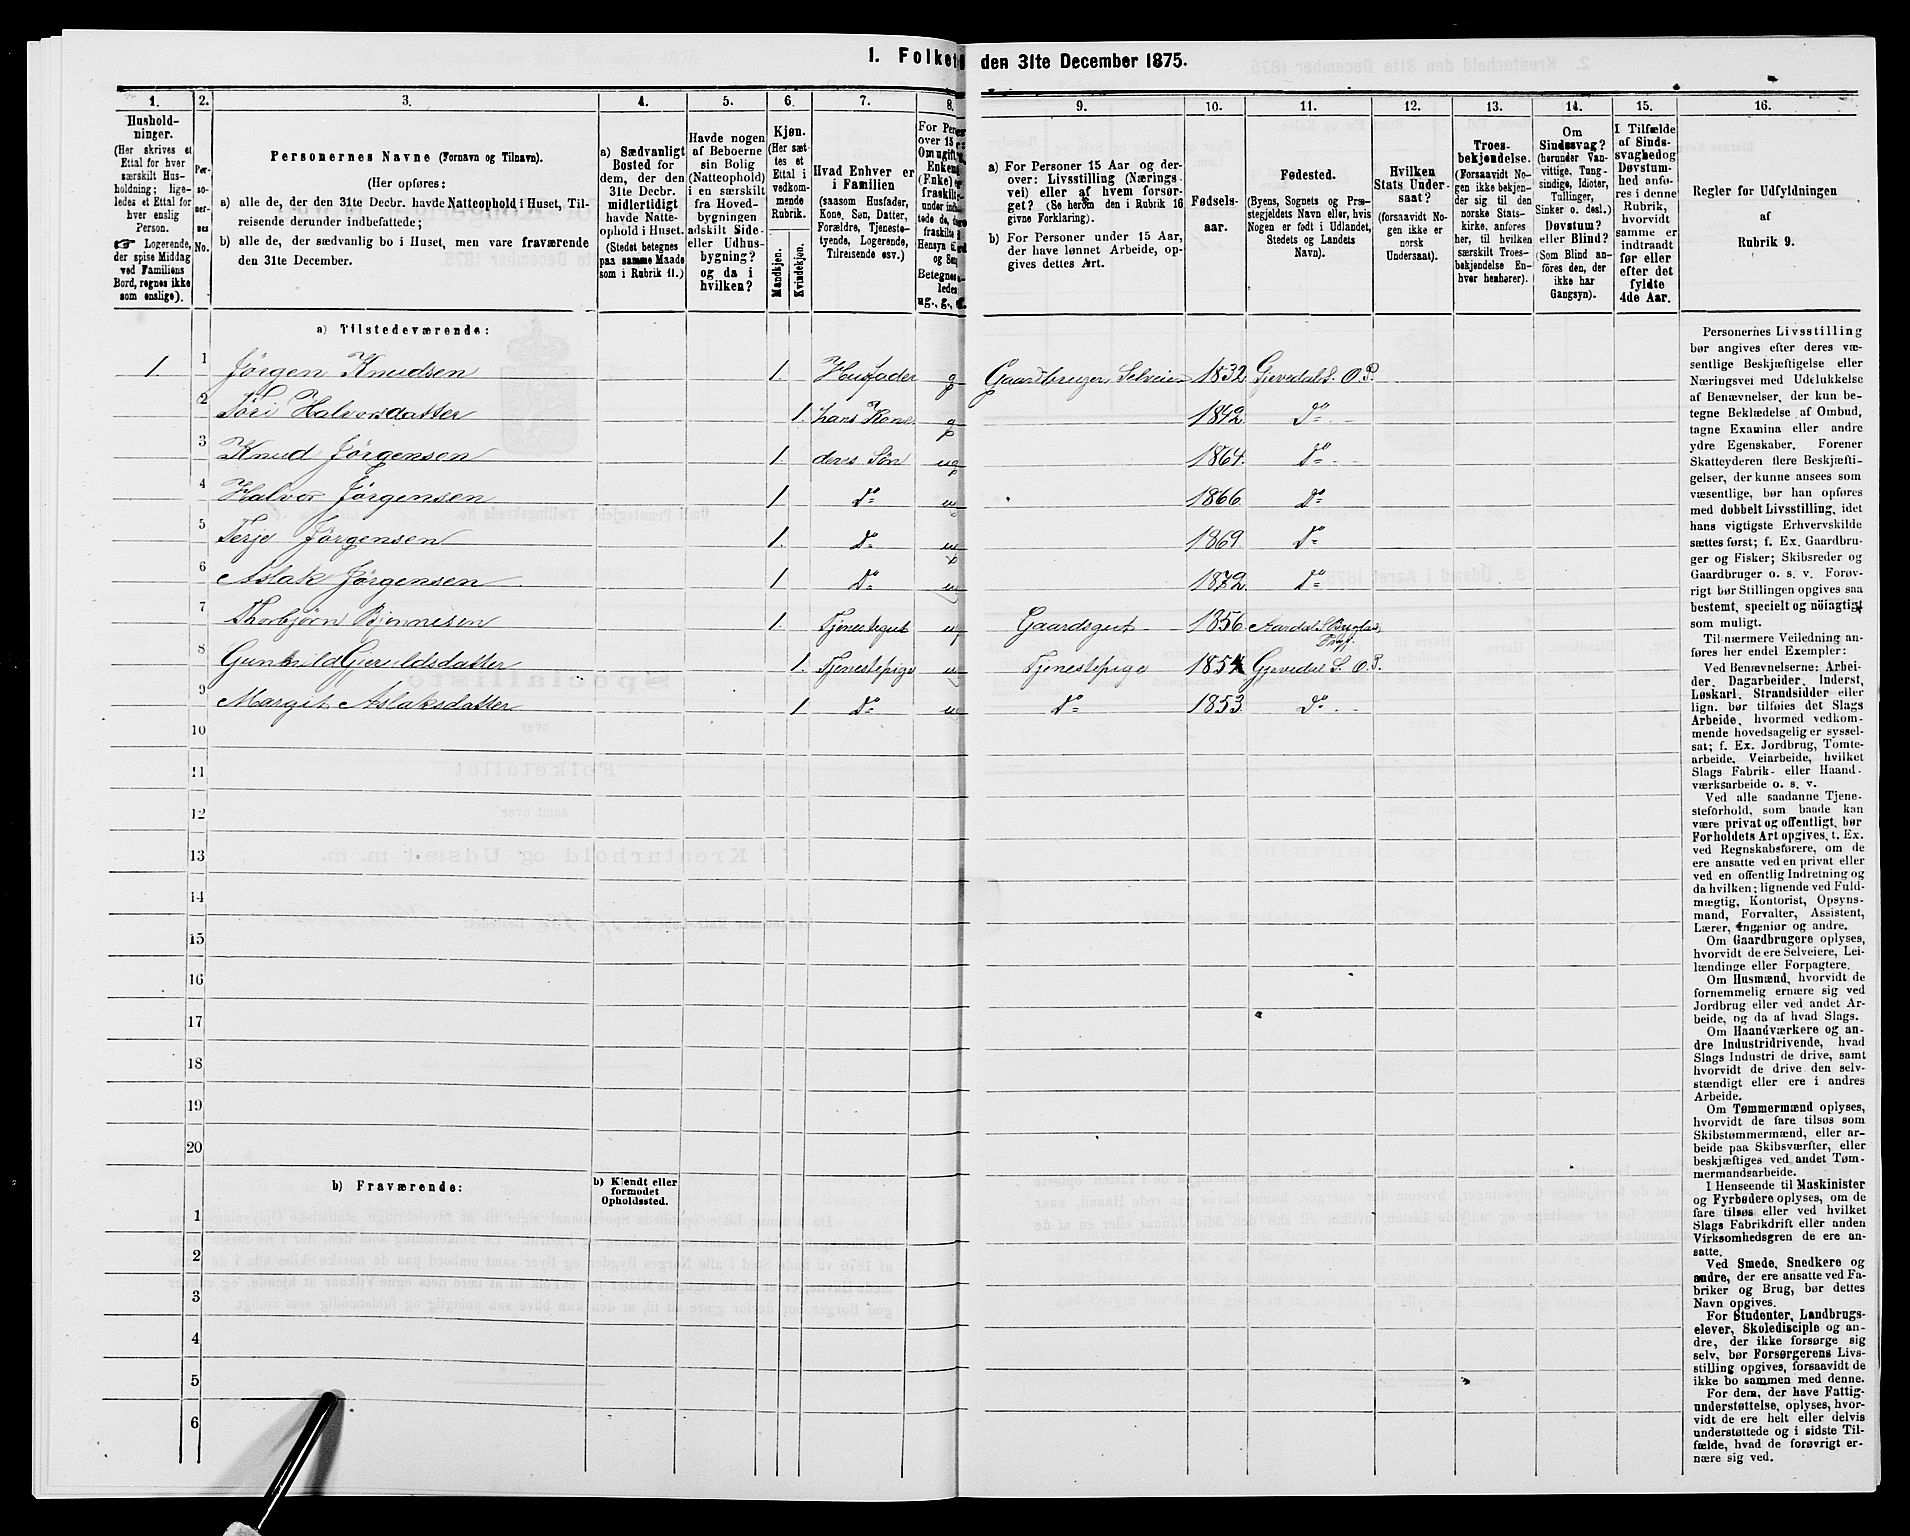 1. Folket
den 31te December 1875.
1.
2.
3.
4.
5.
6.
7.
8.
9.
10.
11.
12.
13.
14.
15.
16.
Hushold-
ninger.
(Her skrives et
Ettal for hver
særskilt Hus-
holdning; lige-
ledes et Ettal for
hver enslig
Person.
☞ Logerende,
der spise Middag
ved Familiens
Bord, regnes ikke
som enslige).
Per-
so-
ner-
nes
No.
Personernes Navne (Fornavn og Tilnavn).
(Her opføres:
a) alle de, der den 31te Decbr. havde Natteophold i Huset, Til-
reisende derunder indbefattede;
b) alle de, der sædvanlig bo i Huset, men vare fraværende
den 31te December.
a) Sædvanligt
Bosted for
dem, der den
31te Decbr.
midlertidigt
havde Natte-
ophold i Huset.
(Stedet betegnes
paa samme Maade
som i Rubrik 11.)
Havde nogen
af Beboerne
sin Bolig
(Natteophold)
i en særskilt
fra Hoved-
bygningen
adskilt Side-
eller Udhus-
bygning?
og da i
hvilken?
Kjøn.
(Her sæt-
tes et
Ettal i
vedkom-
mende
Rubrik.
Mandkjøn.
Kvindekjøn.
Hvad Enhver er
i Familien
(saasom Husfader,
Kone, Søn, Datter,
Forældre, Tjeneste-
tyende, Logerende,
Tilreisende osv.)
For Perso
over 15
Om ugift,
Enkem
(Enke) e
fraskilt
under ind
tede de,
fraskilte
Hensyn
og Se
Betegnes
ledes
ug., g.,
a) For Personer 15 Aar og der-
over: Livsstilling (Nærings-
vei) eller af hvem forsør-
get? (Se herom den i Rubrik 16
givne Forklaring).
b) For Personer under 15 Aar,
der have lønnet Arbeide, op-
gives dettes Art.
Fødsels-
aar.
Fødested.
(Byens, Sognets og Præ-
stegjeldets Navn eller, hvis
Nogen er født i Udlandet,
Stedets og Landets
Navn).
Hvilken
Stats Under-
saat?
(forsaavidt No-
gen ikke er
norsk
Undersaat).
Troes-
bekjendelse.
(Forsaavidt No-
gen ikke bekjen-
der sig til den
norske Stats-
kirke, anføres
her, til hvilken
særskilt Troes-
bekjendelse En-
hver henhører).
Om
Sindssvag?
(herunder Van-
vittige, Tung-
sindige, Idioter,
Tullinger,
Sinker o. desl.)
Døvstum?
eller Blind?
(Som Blind an-
føres den, der
ikke har
Gangsyn).
I Tilfælde
af Sinds-
svaghed og
Døvstum-
hed anfø-
res i denne
Rubrik,
hvorvidt
samme er
indtraadt
før eller
efter det
fyldte
4de Aar.
Regler for Udfyldningen
af
Rubrik 9.
a) Tilstedeværende:
1. 1 Jørgen Knudsen 1. Husfader g Gaardbruger Selveier 1832 Gjevedal S. O.P.
2 Tori Halvorsdatter 1. hans Kone g 1842. Do
3 Knud Jørgensen 1. deres Søn ug 1864. Do
4 Halvor Jørgensen 1. Do 1866. Do
5 Terje Jørgensen 1. Do 1869. Do
6 Aslak Jørgensen 1. Do 1872. Do
7 Thorbjørn 1. Tjenestegut Gaardsgut 1856 Aardal S.
8 Gunhild 1. Tjenestepige Tjenestepige Gjevedal S. O.P.
9 Margit Aslaksdatter 1 Do Do 1853. Do
10
11
12
13
14
15
16
17
18
19
20
b) Fraværende:
b) Kjendt eller
formodet
Opholdssted.
1
2
3
4
5
6
Personernes Livsstilling
bør angives efter deres væ-
sentlige Beskjæftigelse eller
Næringsvei med Udelukkelse
af Benævnelser, der kun be-
tegne Beklædelse af Ombud,
tagne Examina eller andre
ydre Egenskaber. Forener
Skatteyderen flere Beskjæfti-
gelser, der kunne ansees som
væsentlige, bør han opføres
med dobbelt Livsstilling, idet
hans vigtigste Erhvervskilde
sættes først; f. Ex. Gaardbru-
ger og Fisker; Skibsreder og
Gaardbruger o. s. v. Forøv-
rigt bør Stillingen opgives saa
bestemt, specielt og nöiagtigt
som muligt.
Til nærmere Veiledning an-
føres her endel Exempler:
Ved Benævnelserne: Arbei-
der, Dagarbeider, Inderst,
Løskarl, Strandsidder eller
lign. bør tilføies det Slags
Arbeide, hvormed vedkom-
mende hovedsagelig er syssel-
sat; f. Ex. Jordbrug, Tomte-
arbeide, Veiarbeide, hvilket
Slags Fabrik- eller Haand-
værksarbeide o. s. v.
Ved alle saadanne Tjene-
steforhold, som baade kan
være privat og offentligt, bør
Forholdets Art opgives, t. Ex.
ved Regnskabsførere, om de
ere ansatte ved en privat eller
ved en offentlig Indretning og
da hvilken; lignende ved Fuld-
mægtig, Kontorist, Opsyns-
mand, Forvalter, Assistent,
Lærer, Ingeniør og andre.
Om Gaardbrugere oplyses,
hvorvidt de ere Selveiere, Lei-
lændinge eller Forpagtere.
Om Husmænd, hvorvidt de
fornemmelig ernære sig ved
Jordbrug eller ved andet Ar-
beide, og da af hvad Slags.
Om Haandværkere og an-
dre Industridrivende, hvad
Slags Industri de drive, samt
hvorvidt de drive den selv-
stændigt eller ere i andres
Arbeide.
Om Tømmermænd oplyses,
hvorvidt de fare tilsøs som
Skibstømmermænd, eller ar-
beide paa Skibsværfter, eller
beskjæftiges ved andet Tøm-
mermandsarbeide.
I Henseende til Maskinister
og Fyrbødere oplyses, om de
fare tilsøs eller ved hvilket
Slags Fabrikdrift eller anden
Virksomhedsgren de ere an-
satte.
Ved Smede, Snedkere og
andre, der ere ansatte ved Fa-
briker og Brug, bør dettes
Navn opgives.
For Studenter, Landbrugs-
elever, Skoledisciple og an-
dre, der ikke forsørge sig
selv, bør Forsørgerens Livs-
stilling opgives, forsaavidt de
ikke bo sammen med denne.
For dem, der have Fattig-
understøttelse, oplyses, hvor-
vidt de ere helt eller delvis
understøttede og i sidste Til-
fælde, hvad de forøvrigt er-
nære sig ved.